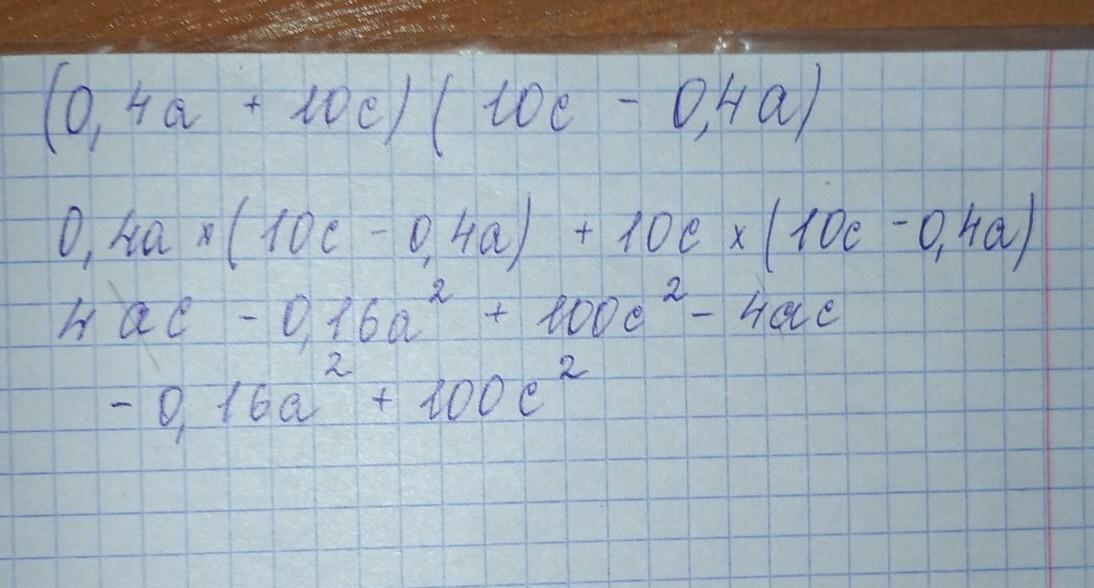 (0,4a + 10c) (10c - 0,4a)
0,4a × (10c - 0,4a) + 10c × (10c - 0,4a)
4ac - 0,16a² + 100c² - 4ac
- 0,16a² + 100c²